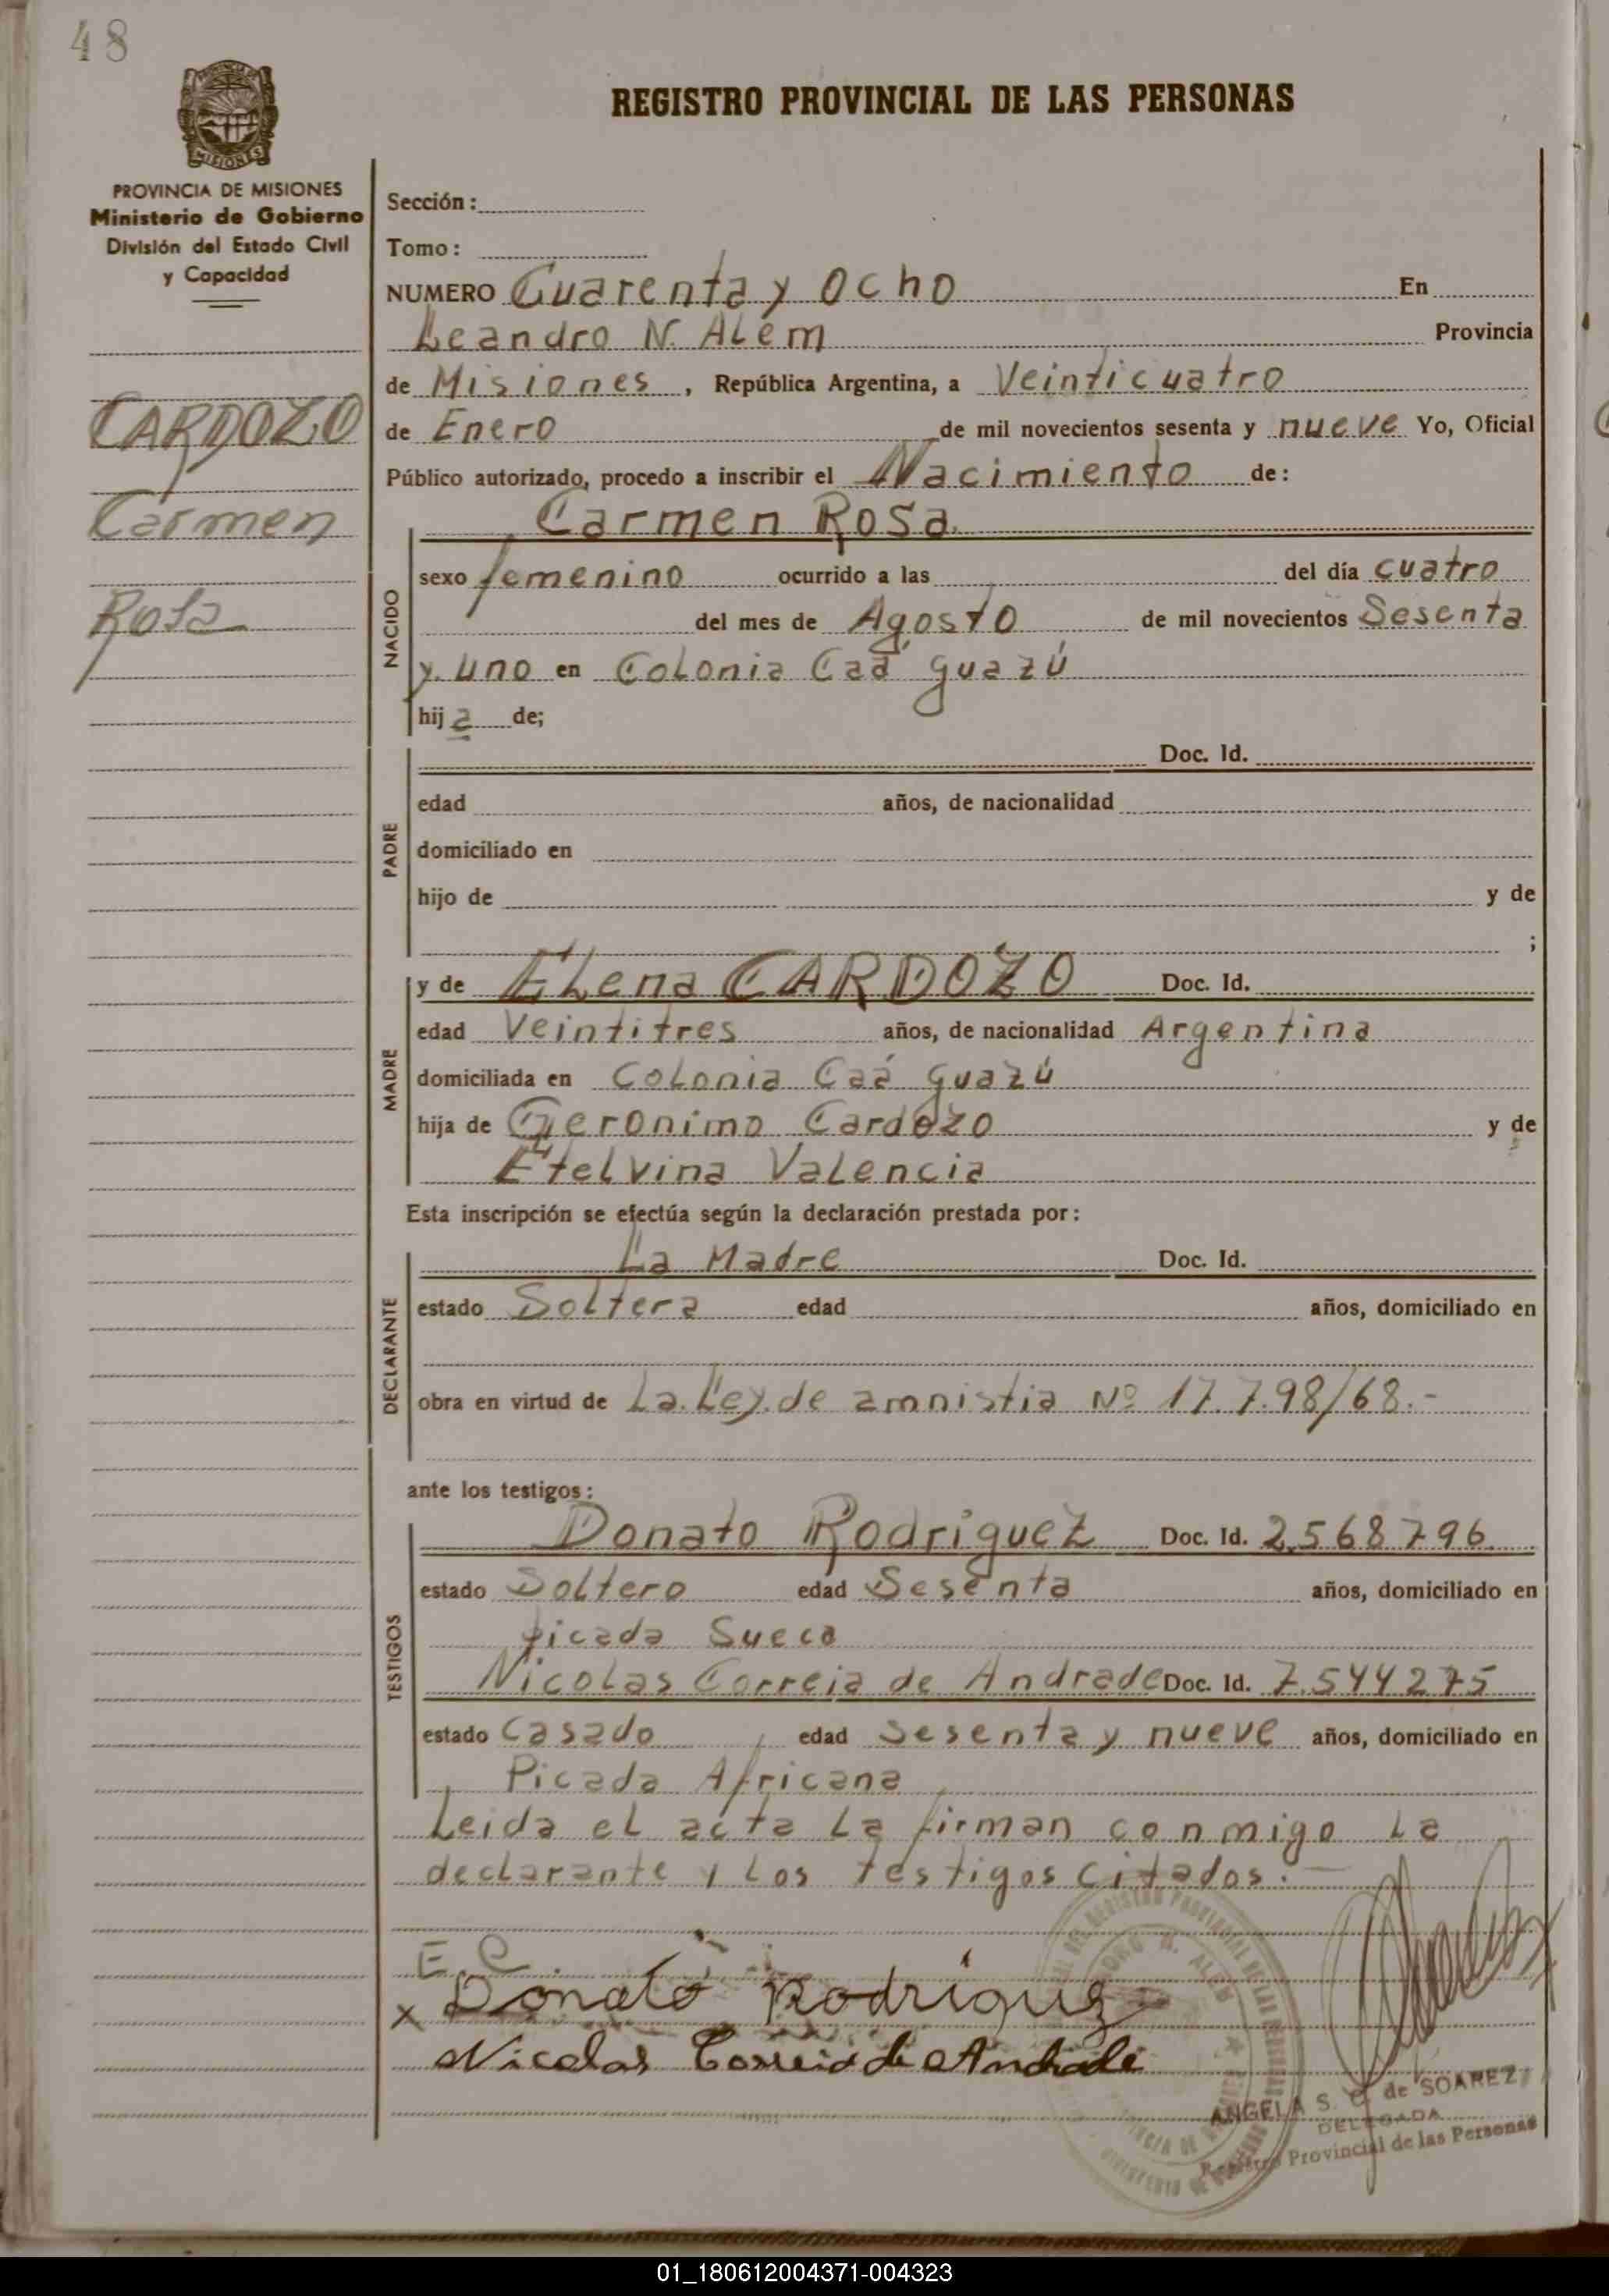 48
REGISTRO PROVINCIAL DE LAS PERSONAS
PROVINCIA DE MISIONES
Ministerio de Gobierno
División del Estado Civil
y Capacidad
CARDOZO
Carmen
Rosa
Sección:
Tomo:
NUMERO Cuarenta y Ocho En
Leandro N. Alem Provincia
de Misiones, República Argentina, a Veinticuatro
de Enero de mil novecientos sesenta y nueve Yo, Oficial
Público autorizado, procedo a inscribir el Nacimiento de:
NACIDO
Carmen Rosa
sexo femenino ocurrido a las del día cuatro
del mes de Agosto de mil novecientos Sesenta
y uno en Colonia Caá guazú
hij a de;
PADRE
Doc. Id.
edad años, de nacionalidad
domiciliado en
hijo de y de
;
MADRE
y de Elena CARDOZO Doc. Id.
edad Veintitres años, de nacionalidad Argentina
domiciliada en Colonia Caá guazú
hija de Geronimo Cardozo y de
Etelvina Valencia
Esta inscripción se efectúa según la declaración prestada por:
DECLARANTE
La Madre Doc. Id.
estado Soltera edad años, domiciliado en
obra en virtud de La Ley de amnistia Nº 17.798/68.-
ante los testigos:
TESTIGOS
Donato Rodriguez Doc. Id. 2.568.796
estado Soltero edad Sesenta años, domiciliado en
picada Sueca
Nicolas Correia de Andrade Doc. Id. 7.544275
estado Casado edad Sesenta y nueve años, domiciliado en
Picada Africana
Leida el acta La firman conmigo la
declarante y Los testigos citados.-
E. C.
x Donato Rodriguez
Nicolas Correia de Andrade
ANGELA S. de SOAREZ
DELEGADA
Registro Provincial de las Personas
01_180612004371-004323